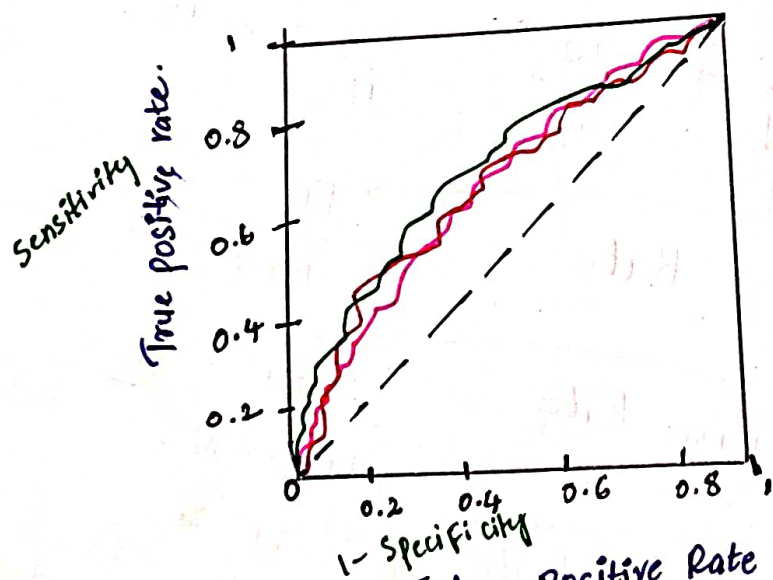 Sensitivity
True positive rate.
1
0.8
0.6
0.4
0.2
0 0.2 0.4 0.6 0.8 1
1- Specificity
Positive Rate